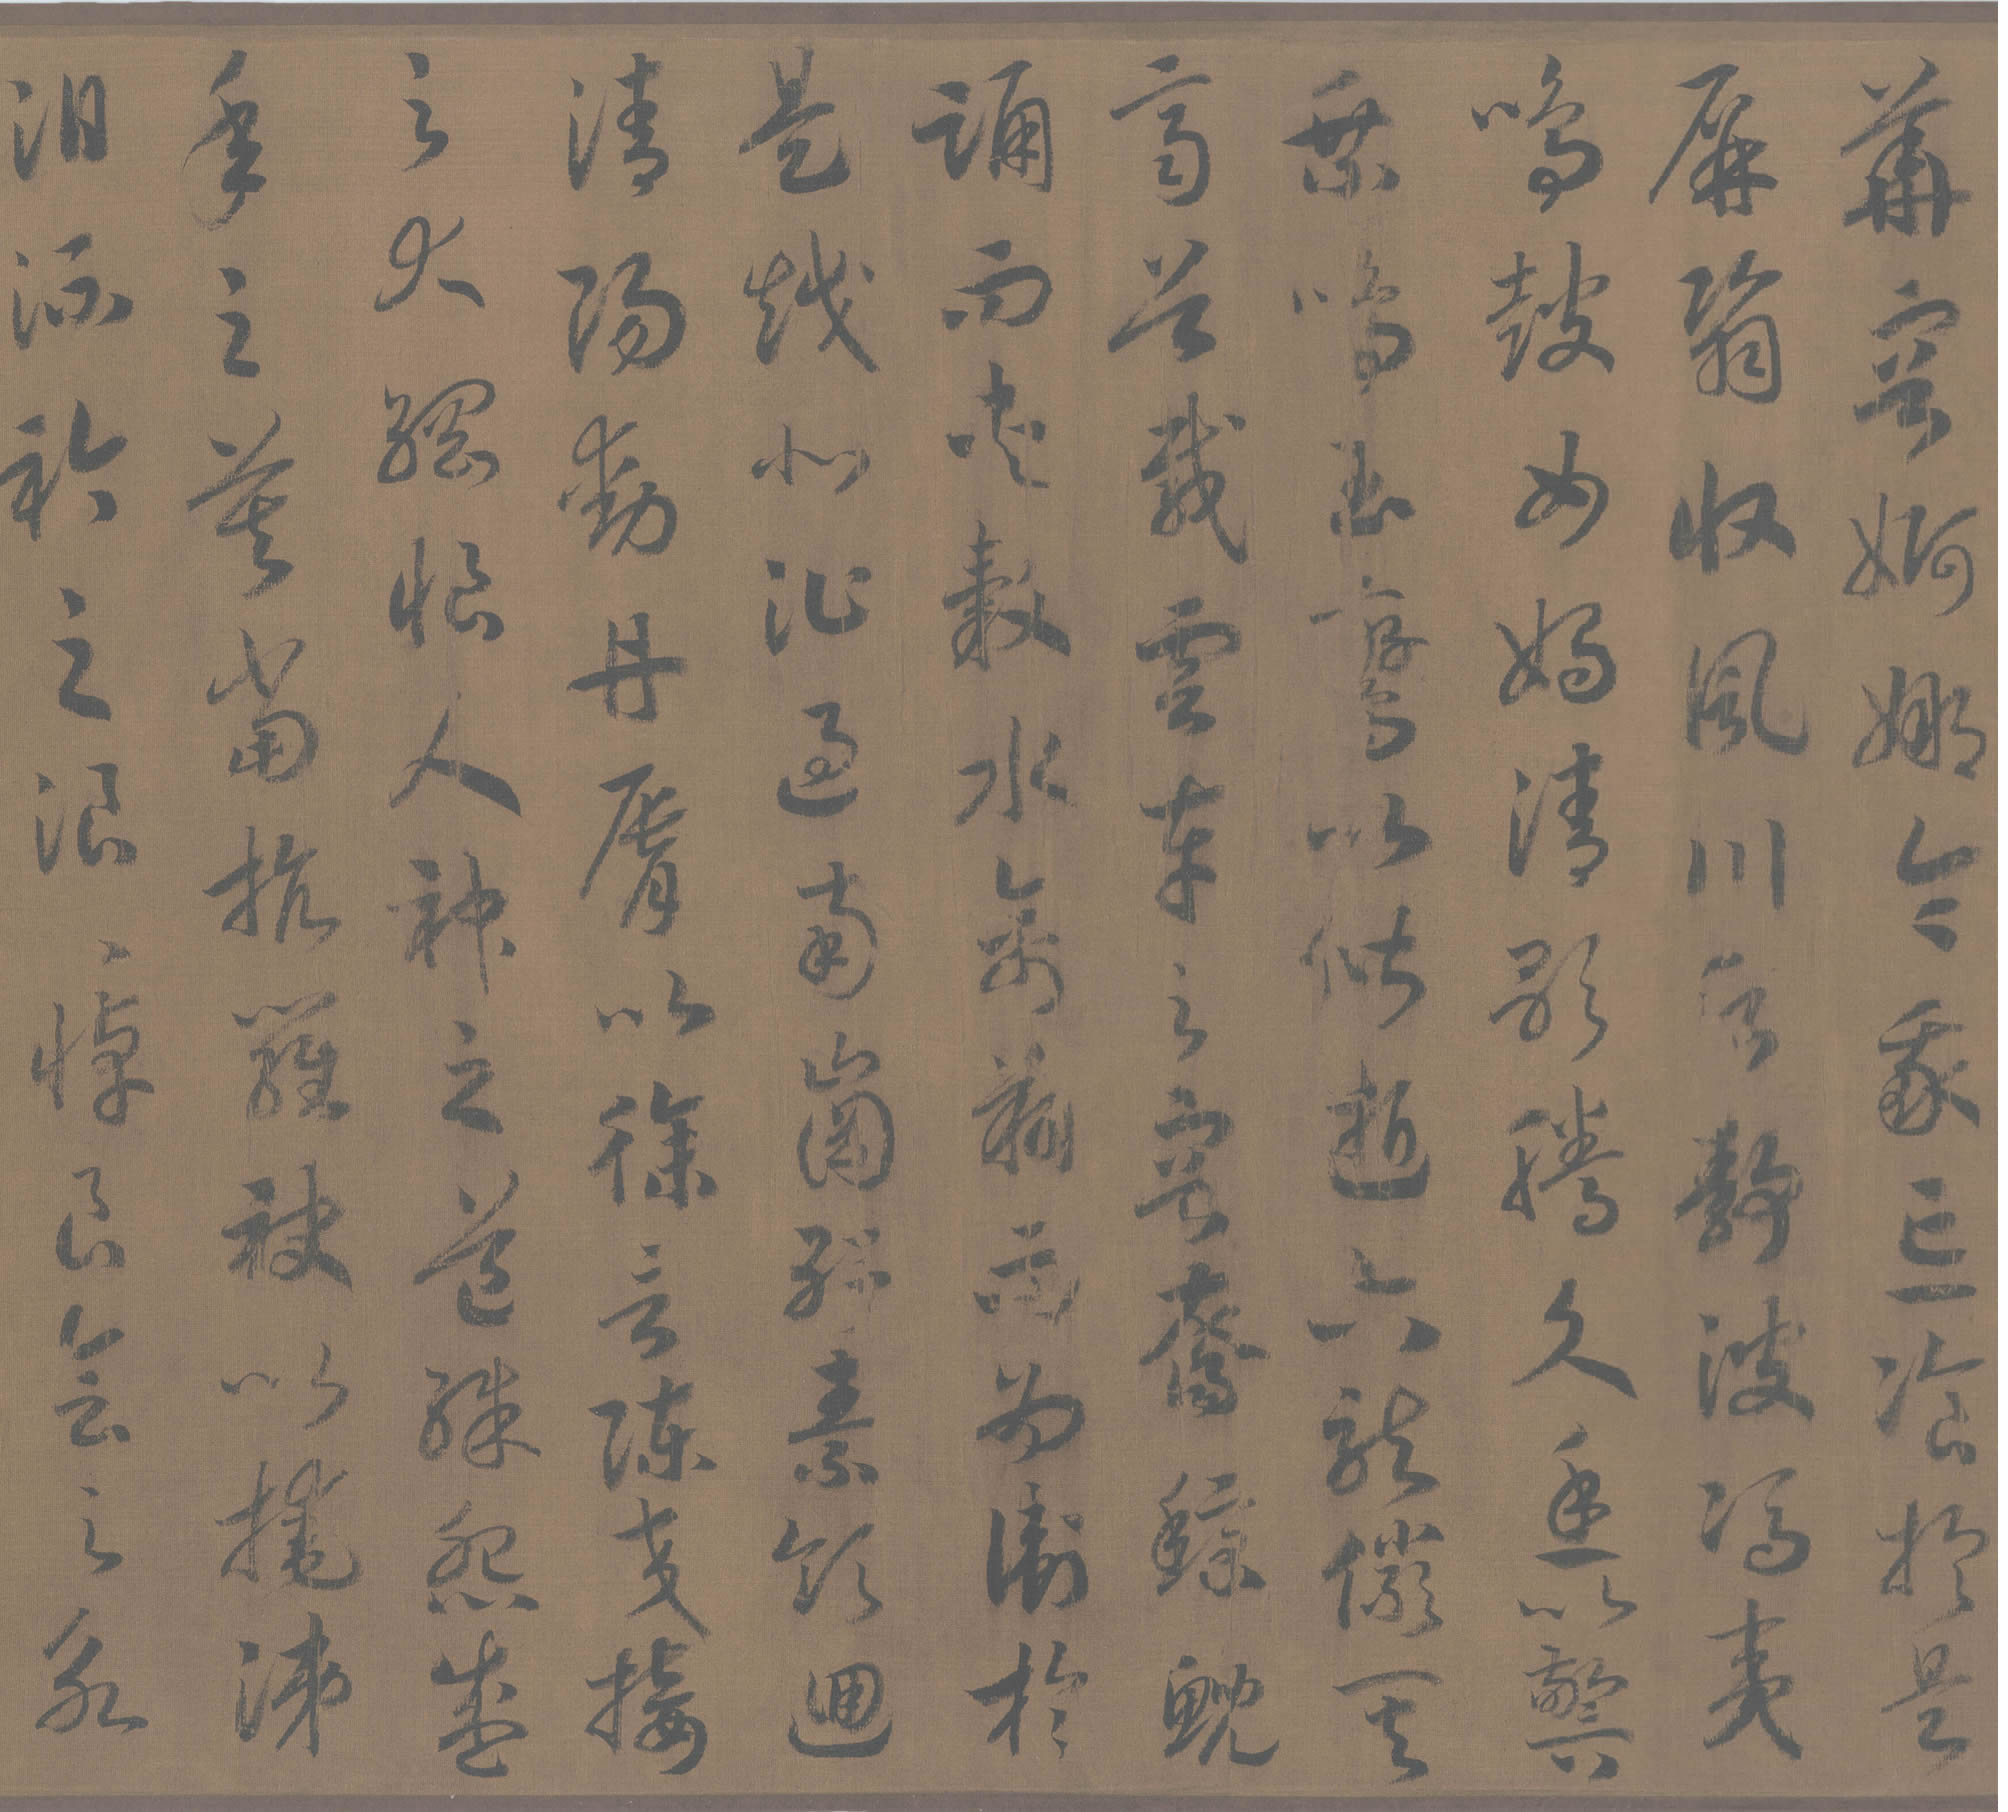 華容婀娜令我忘飡於是
屏翳收風川后靜波馮夷
鳴鼓女媧清歌騰文魚以警
乘鳴玉鸞以偕逝六龍儼其
齊首載雲車之容裔鯨鯢
踊而夾轂水禽翔而為衛於
是越北沚過南岡紆素領迴
清陽動丹脣以徐言陳交接
之大綱恨人神之道殊怨盛
年之莫當抗羅袂以掩涕
淚流於之浪浪悼良會之永